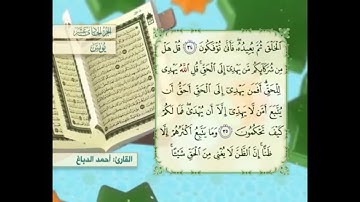 الجزء الحادي عشر
يونس
ٱلْخَلْقَ ثُمَّ يُعِيدُهُۥ فَأَنَّىٰ تُؤْفَكُونَ ٣٤ قُلْ هَلْ
مِن شُرَكَآئِكُم مَّن يَهْدِىٓ إِلَى ٱلْحَقِّ قُلِ ٱللَّهُ يَهْدِى
لِلْحَقِّ أَفَمَن يَهْدِىٓ إِلَى ٱلْحَقِّ أَحَقُّ أَن
يُتَّبَعَ أَمَّن لَّا يَهِدِّىٓ إِلَّآ أَن يُهْدَىٰ فَمَا لَكُمْ
كَيْفَ تَحْكُمُونَ ٣٥ وَمَا يَتَّبِعُ أَكْثَرُهُمْ إِلَّا
ظَنًّا إِنَّ ٱلظَّنَّ لَا يُغْنِى مِنَ ٱلْحَقِّ شَيْـًٔا
القارئ: أحمد الدباغ